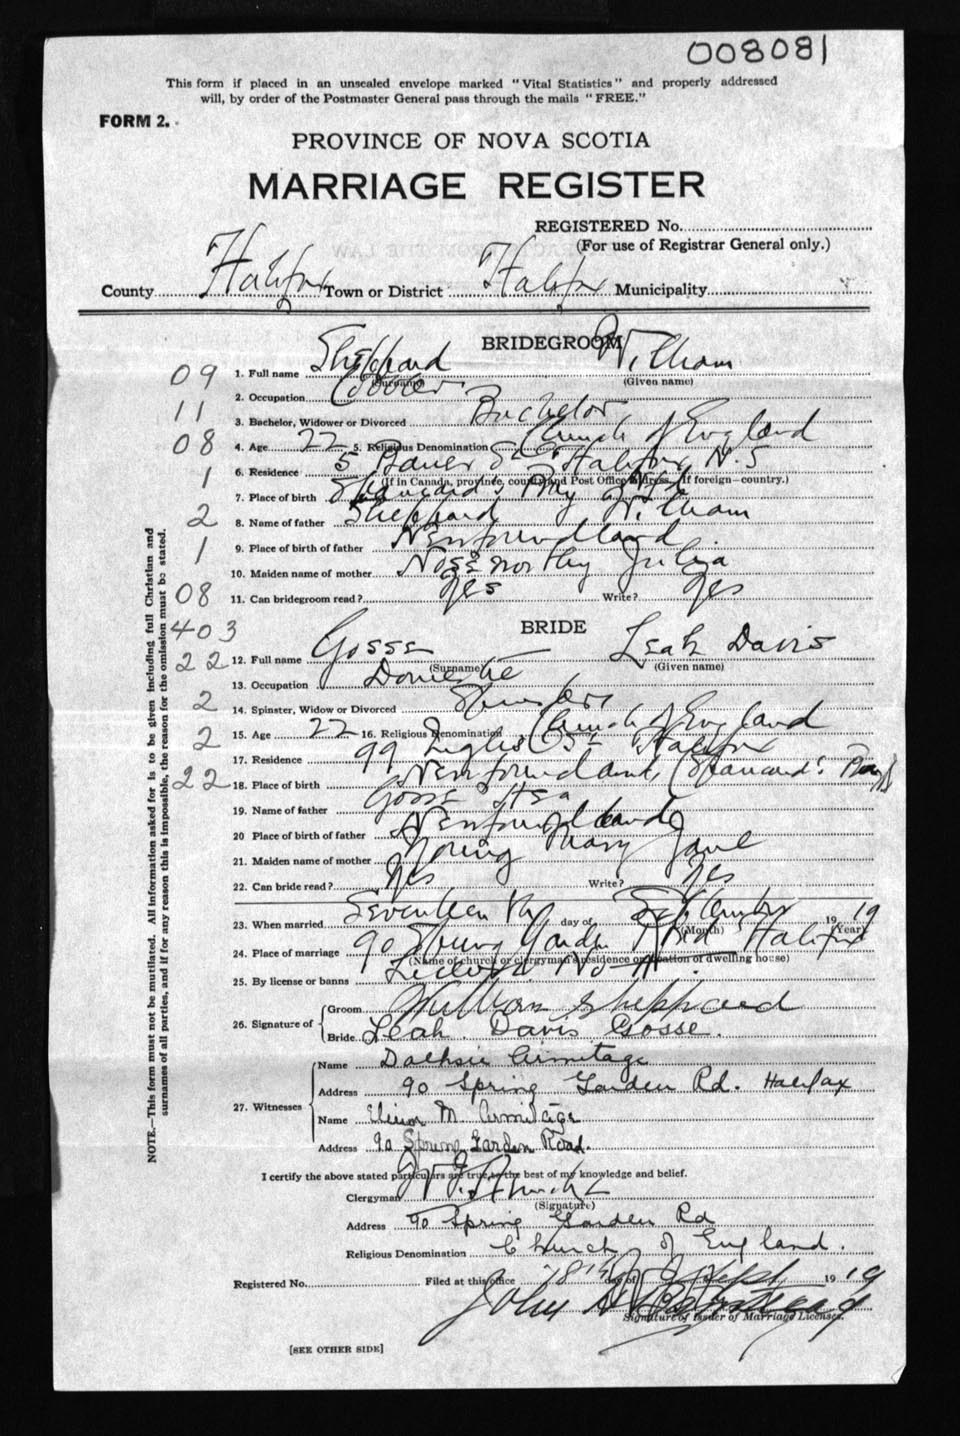 008081
This form if placed in an unsealed envelope marked "Vital Statistics" and properly addressed
will, by order of the Postmaster General pass through the mails "FREE."
FORM 2.
PROVINCE OF NOVA SCOTIA
MARRIAGE REGISTER
REGISTERED No.
(For use of Registrar General only.)
County Halifax Town or District Halifax Municipality
BRIDEGROOM
09 1. Full name Sheppard William
(Surname) (Given name)
2. Occupation
11 3. Bachelor, Widower or Divorced Bachelor
08 4. Age 22 5. Religious Denomination Church of England
1 6. Residence 5 Bauer St Halifax N.S
(If in Canada, province, county and Post Office address. If foreign—country.)
7. Place of birth Spaniard's Bay Nfld
2 8. Name of father Sheppard William
1 9. Place of birth of father Newfoundland
10. Maiden name of mother Noseworthy Julia
08 11. Can bridegroom read? Yes Write? Yes
403 BRIDE
22 12. Full name Gosse Leah Davis
(Surname) (Given name)
13. Occupation Domestic
2 14. Spinster, Widow or Divorced Spinster
2 15. Age 22 16. Religious Denomination Church of England
17. Residence 99 Inglis St Halifax
22 18. Place of birth Newfoundland, (Spaniard's Bay)
19. Name of father Gosse
20 Place of birth of father Newfoundland
21. Maiden name of mother Mary Jane
22. Can bride read? Yes Write? Yes
23. When married Seventeenth day of September 19 19
(Month) (Year)
24. Place of marriage 90 Spring Garden Road Halifax
(Name of church or clergyman's residence or location of dwelling house)
25. By license or banns License No
26. Signature of Groom William Sheppard
Bride Leah Davis Gosse.
27. Witnesses Name Armitage
Address 90 Spring Garden Rd. Halifax
Name M. Armitage
Address 90 Spring Garden Road.
I certify the above stated particulars are true to the best of my knowledge and belief.
Clergyman
(Signature)
Address 90 Spring Garden Rd
Religious Denomination Church of England.
Registered No. Filed at this office 18th day of Sept 19 19
John
Signature of Issuer of Marriage Licenses.
[SEE OTHER SIDE]
NOTE.—This form must not be mutilated. All information asked for is to be given including full Christian and
surnames of all parties, and if for any reason this is impossible, the reason for the omission must be stated.